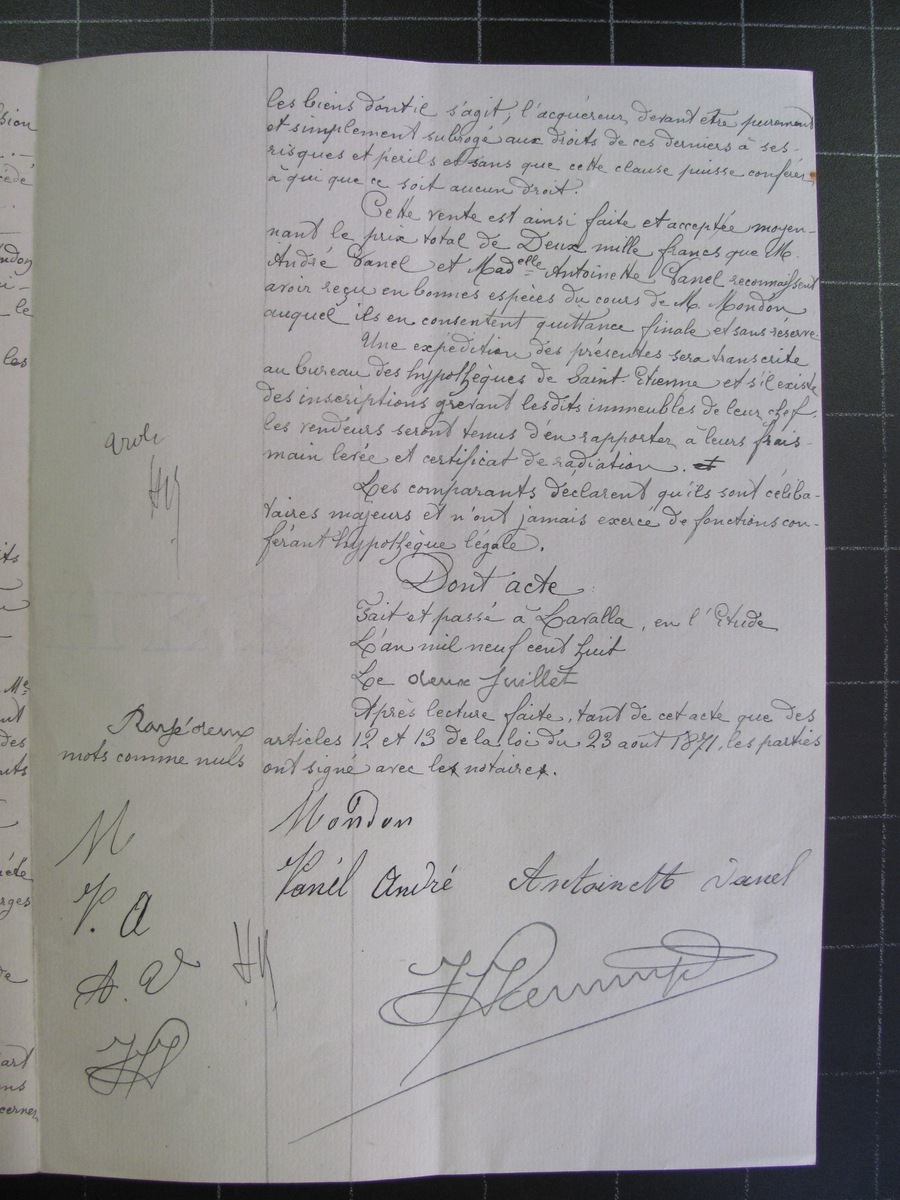 les biens dont il s'agit, l'acquéreur devant être purement
et simplement subrogé aux droits de ces derniers à ses
risques et périls et sans que cette clause puisse conférer
à qui que ce soit aucun droit.
Cette vente est ainsi faite et acceptée moyen-
nant le prix total de Deux mille francs que M.
André Vanel et Madelle Antoinette Vanel reconnaissent
avoir reçu en bonnes espèces du cours de M. Mondon
auquel ils en consentent quittance finale et sans réserve
Une expédition des présentes sera transcrite
au bureau des hypothèques de Saint-Etienne et s'il existe
des inscriptions grevant lesdits immeubles de leur chef,
les vendeurs seront tenus d'en rapporter à leurs frais
main levée et certificat de radiation.
Les comparants déclarent qu'ils sont céliba-
taires majeurs et n'ont jamais exercé de fonctions con-
férant hypothèque légale.
Dont acte
Fait et passé à Lavalla, en l'Etude
L'an mil neuf cent huit
Le deux Juillet
Après lecture faite, tant de cet acte que des
articles 12 et 13 de la loi du 23 août 1871, les parties
ont signé avec les notaires.
Rayé deux
mots comme nuls
Mondon
M
Vanel André Antoinette Vanel
V. A
A. V